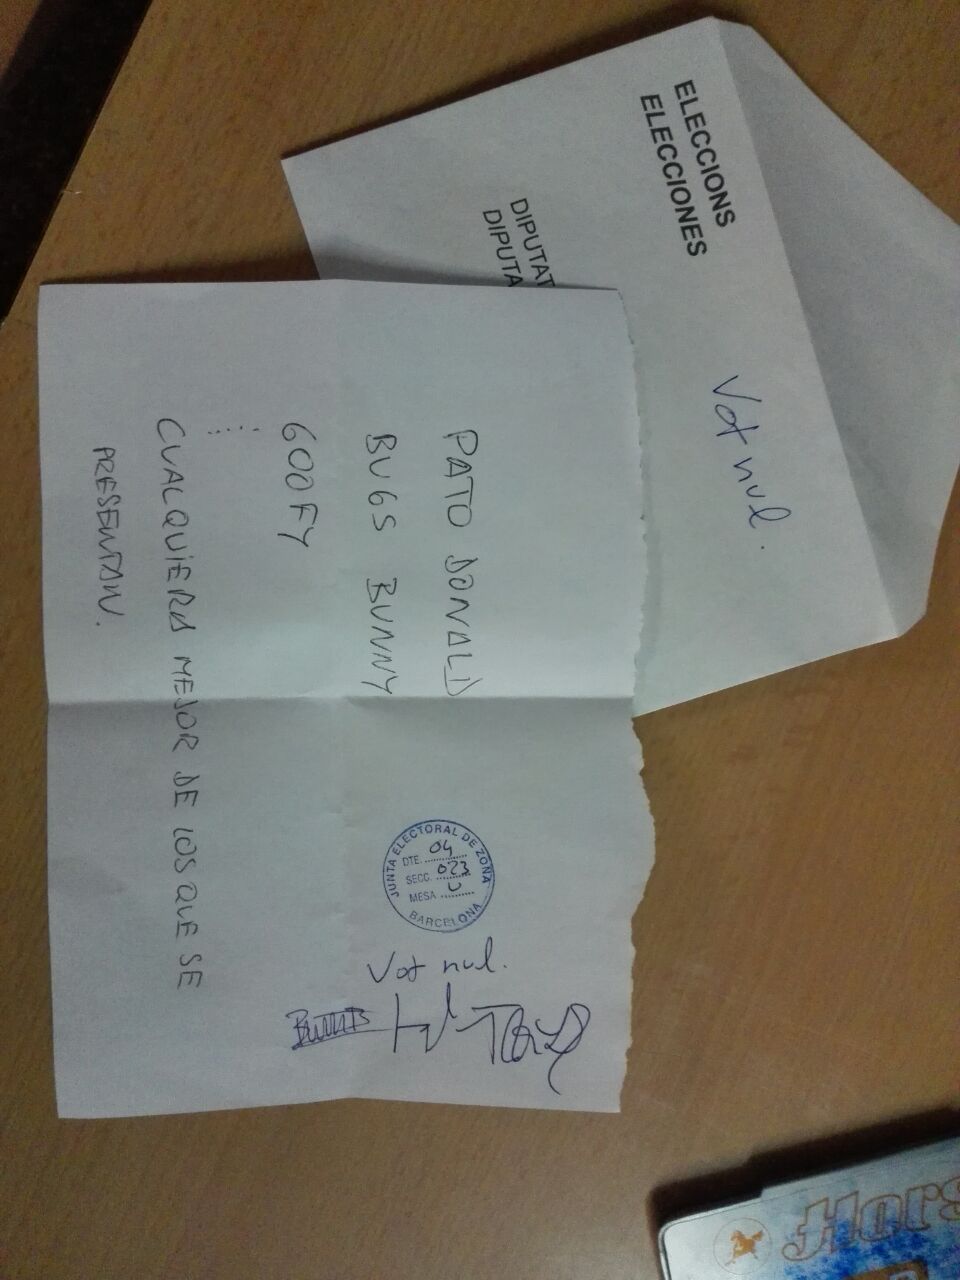 ELECCIONS
ELECCIONES
DIPUTAT
DIPUTA
Vot nul.
PATO DONALD
BUGS BUNNY
GOOFY
⋮
CUALQUIERA MEJOR DE LOS QUE SE
PRESENTAN.
JUNTA ELECTORAL DE ZONA
DTE. 04
SECC. 023
MESA U
BARCELONA
Vot nul.
Hors